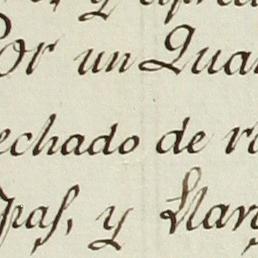 y
Por un Qua
echado de r
pas, y Nar